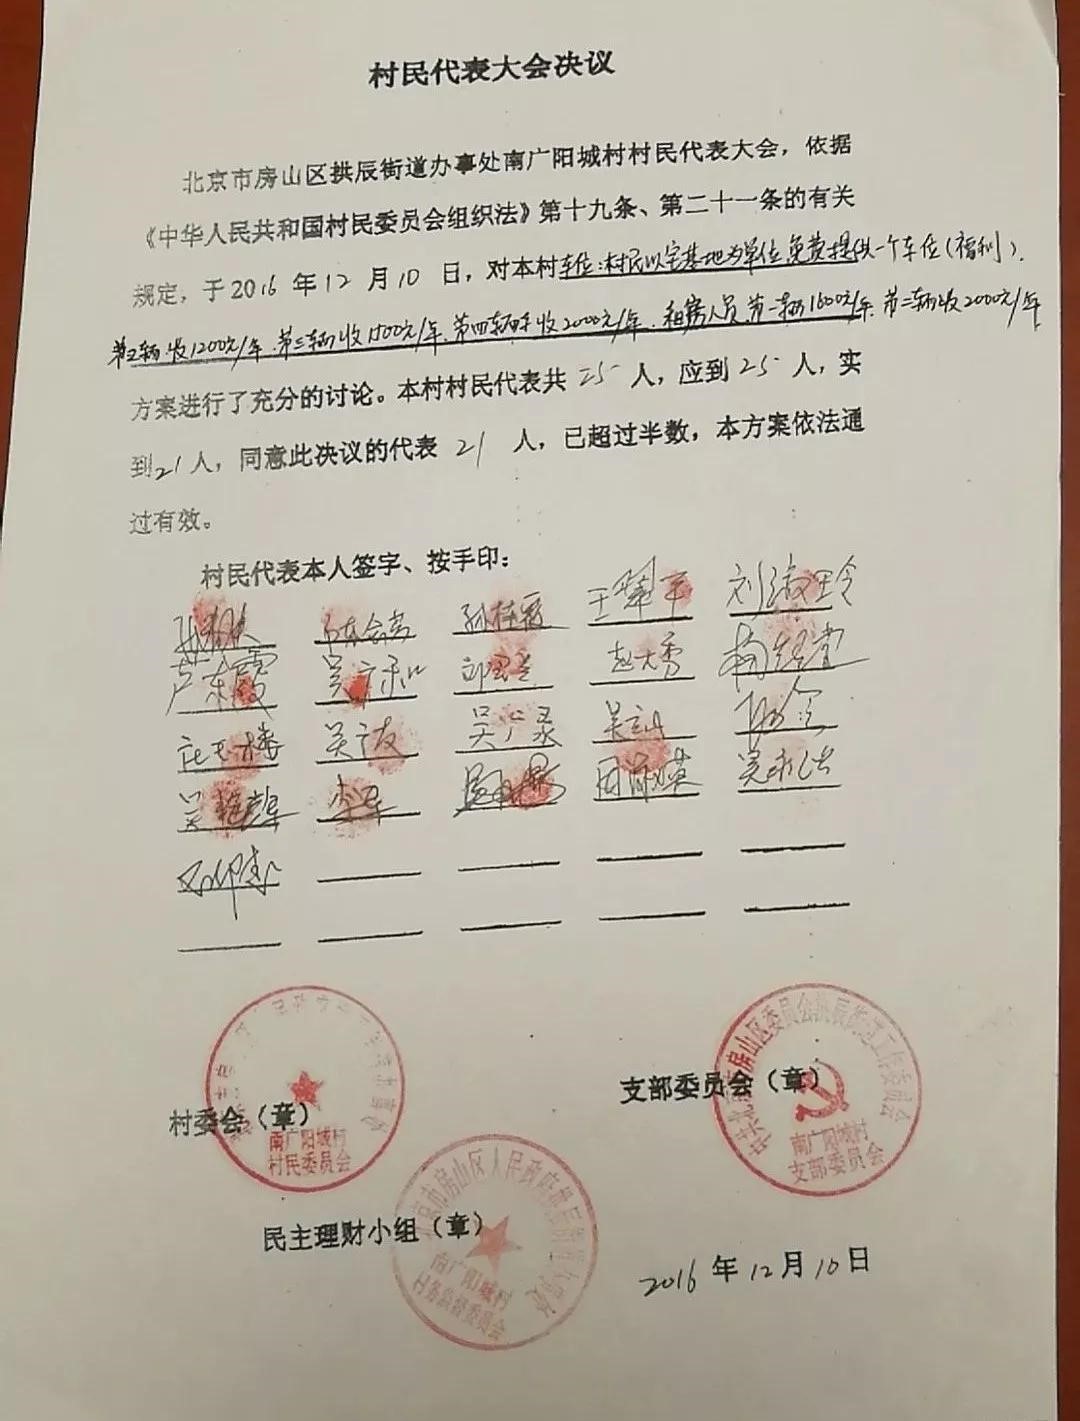 村民代表大会决议
北京市房山区拱辰街道办事处南广阳城村村民代表大会，依据
《中华人民共和国村民委员会组织法》第十九条、第二十一条的有关
规定，于2016年12月10日，对本村车位：村民以宅基地为单位免费提供一个车位（福利）.
第二辆收1200元/年.第三辆收1500元/年.第四辆收2000元/年.租房人员第一辆1600元/年.第二辆收2000元/年
方案进行了充分的讨论。本村村民代表共25人，应到25人，实
到21人，同意此决议的代表21人，已超过半数，本方案依法通
过有效。
村民代表本人签字、按手印：
孙桂霞 刘淑玲
芦东霞 赵大秀
吴广友 吴广录
李军
村委会（章）
南广阳城村
村民委员会
支部委员会（章）
南广阳城村
支部委员会
民主理财小组（章）
南广阳城村
村务监督委员会
2016年12月10日